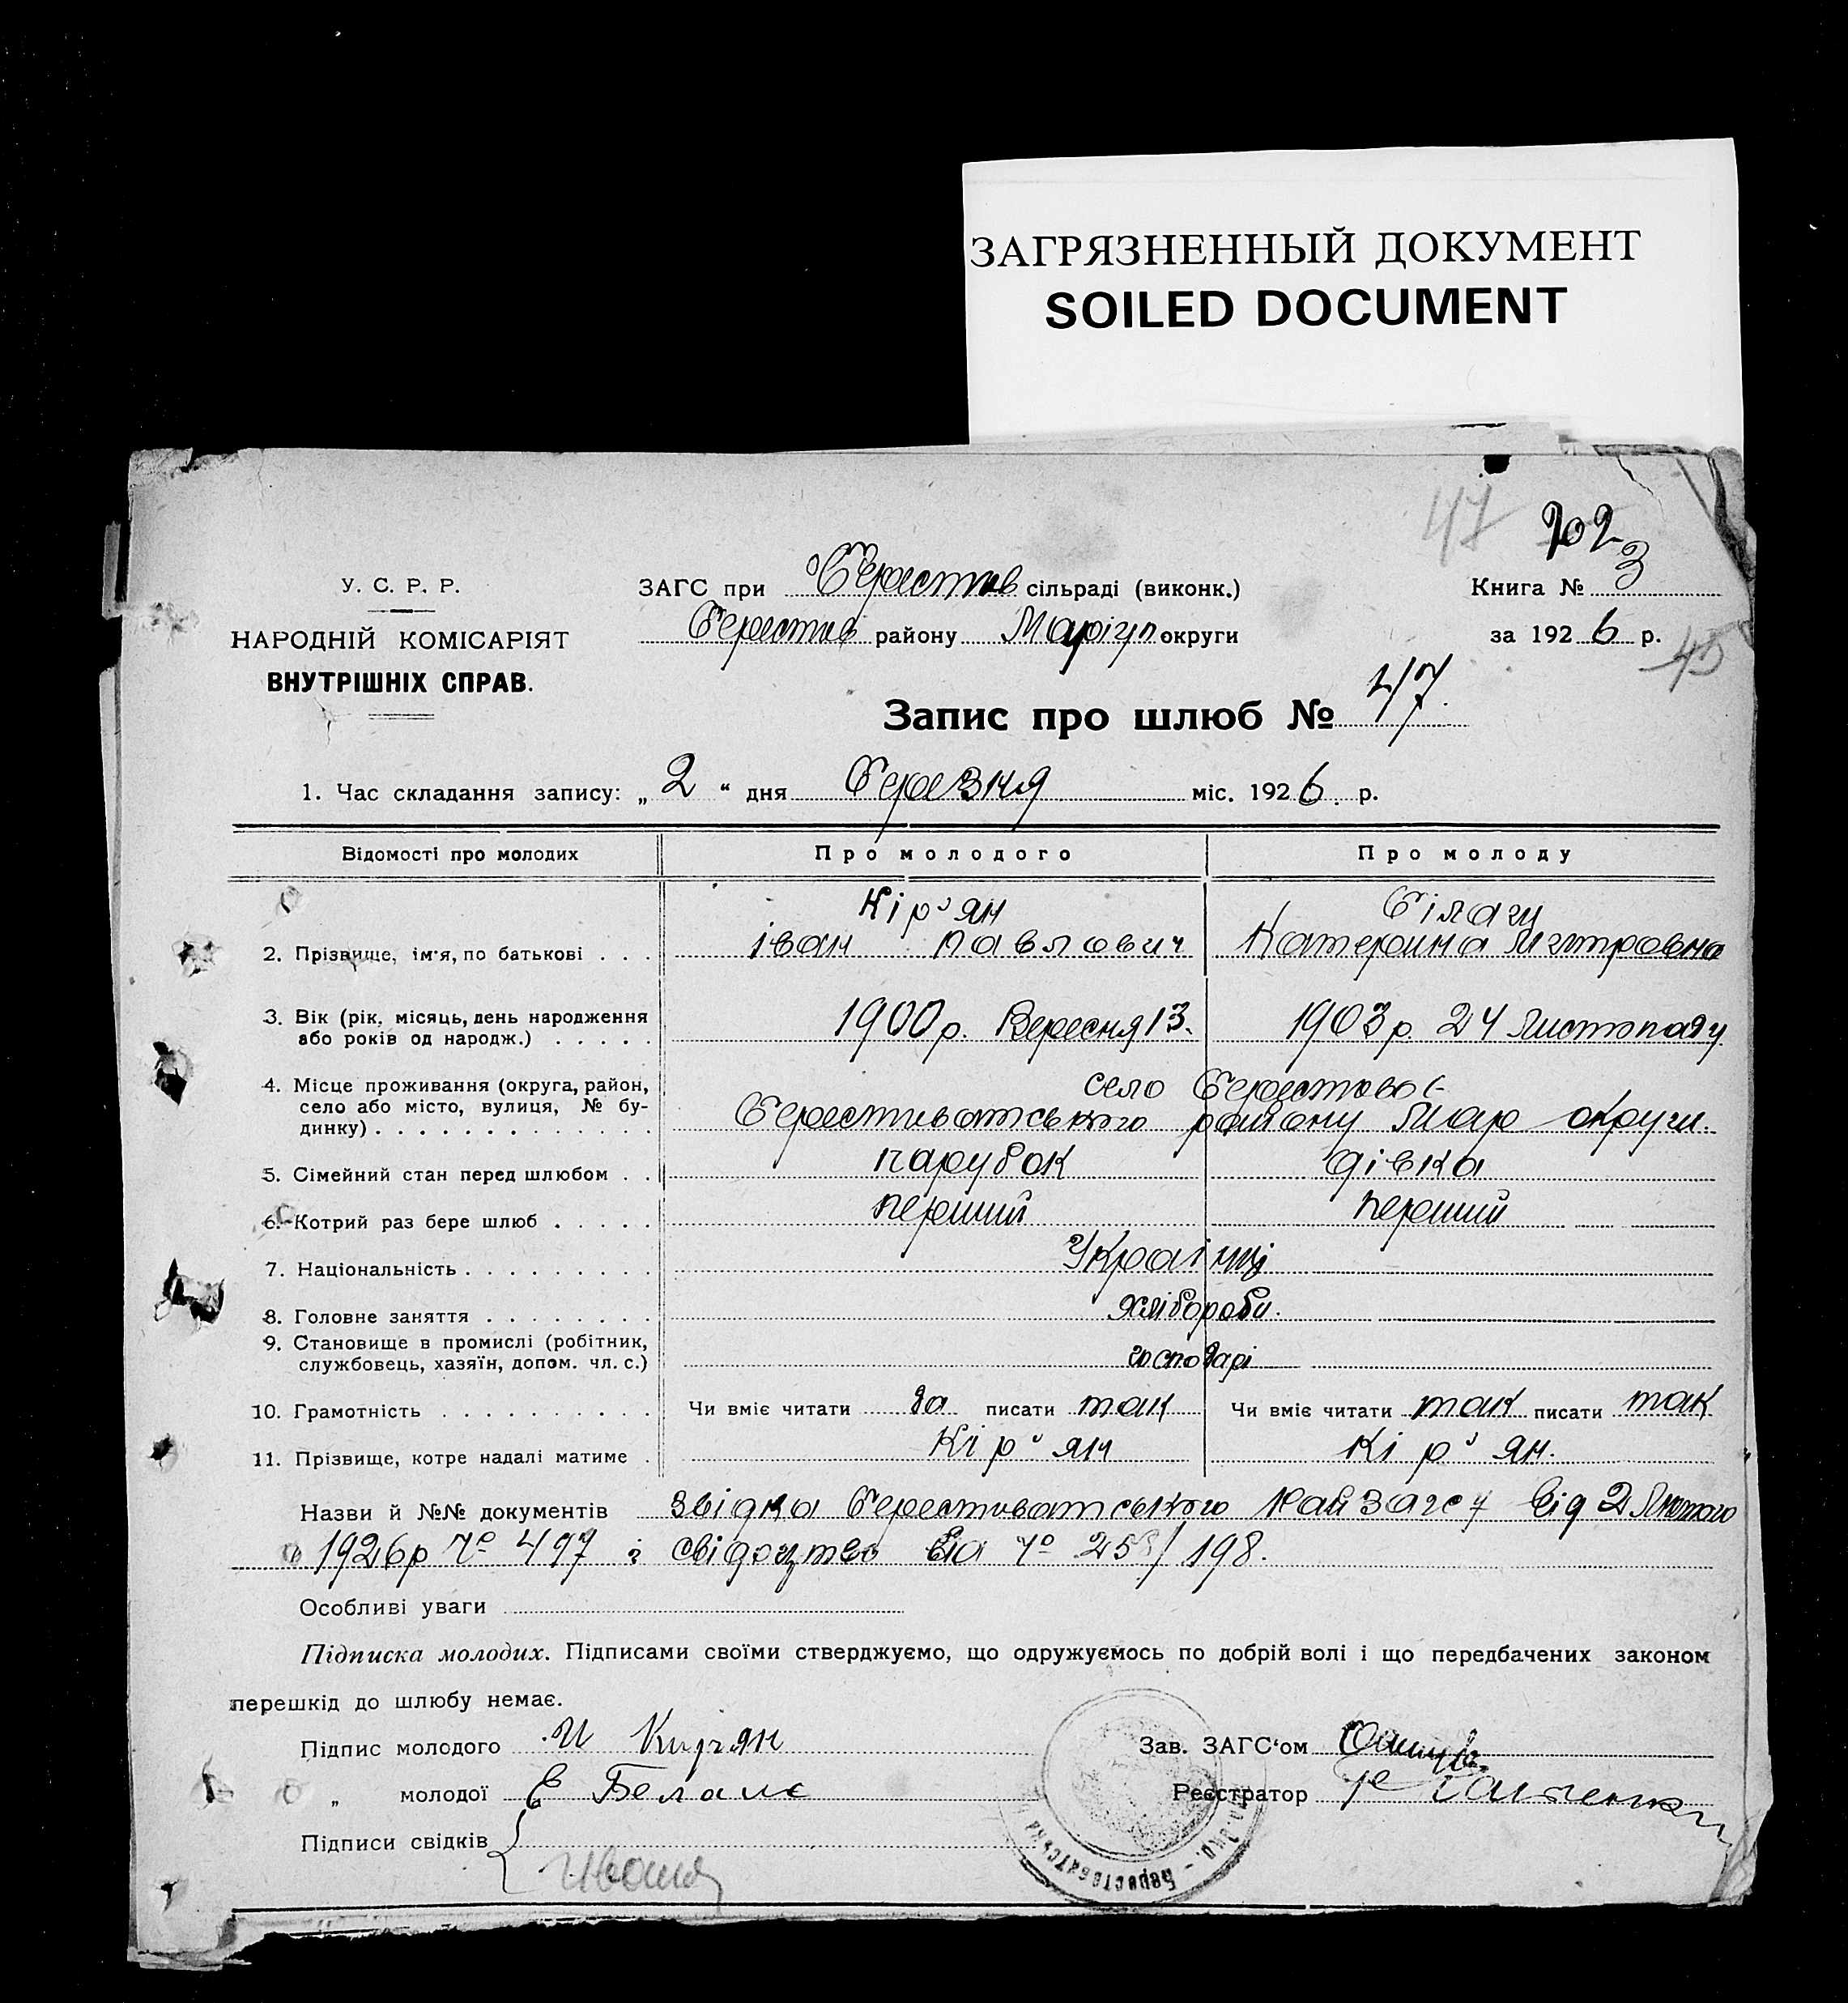 ЗАГРЯЗНЕННЫЙ ДОКУМЕНТ
SOILED DOCUMENT
47 202
У. С. Р. Р.
НАРОДНІЙ КОМІСАРІЯТ
ВНУТРІШНІХ СПРАВ.
ЗАГС при Берестив сільраді (виконк.)
Берестив району Маріуп округи
Книга № 3
за 1926 р.
45
Запис про шлюб № 47.
1. Час складання запису: „ 2 “ дня Березня міс. 1926. р.
Відомості про молодих Про молодого Про молоду
Кір'ян Білаги
2. Прізвище, ім'я, по батькові . . . іван павлович Катерина Митровна
3. Вік (рік, місяць, день народження
або років од народж.) . . . . . 1900 р. Вересня 13. 1903 р. 24 Листопаду
4. Місце проживання (округа, район, село Берестово
село або місто, вулиця, № бу-
динку) . . . . . . . . . . . . . Берестиватського району Мар округи.
5. Сімейний стан перед шлюбом . . парубок дівка
6. Котрий раз бере шлюб . . . . . перший перший
7. Національність . . . . . . . . . Украінці
8. Головне заняття . . . . . . . . хлібороби.
9. Становище в промислі (робітник,
службовець, хазяїн, допом. чл. с.) господарі
10. Грамотність . . . . . . . . . . Чи вміє читати да писати так Чи вміє читати так писати так
11. Прізвище, котре надалі матиме . Кір'ян Кір'ян.
Назви й №№ документів звідка Берестиватського Рай Загсу від 2 Лютого
1926 р № 497 і свідоцтво № 258/198.
Особливі уваги
Підписка молодих. Підписами своїми стверджуємо, що одружуємось по добрій волі і що передбачених законом
перешкід до шлюбу немає.
Підпис молодого И Кирьян
„ молодої Е Белаге
Підписи свідків
Зав. ЗАГС'ом
Реєстратор